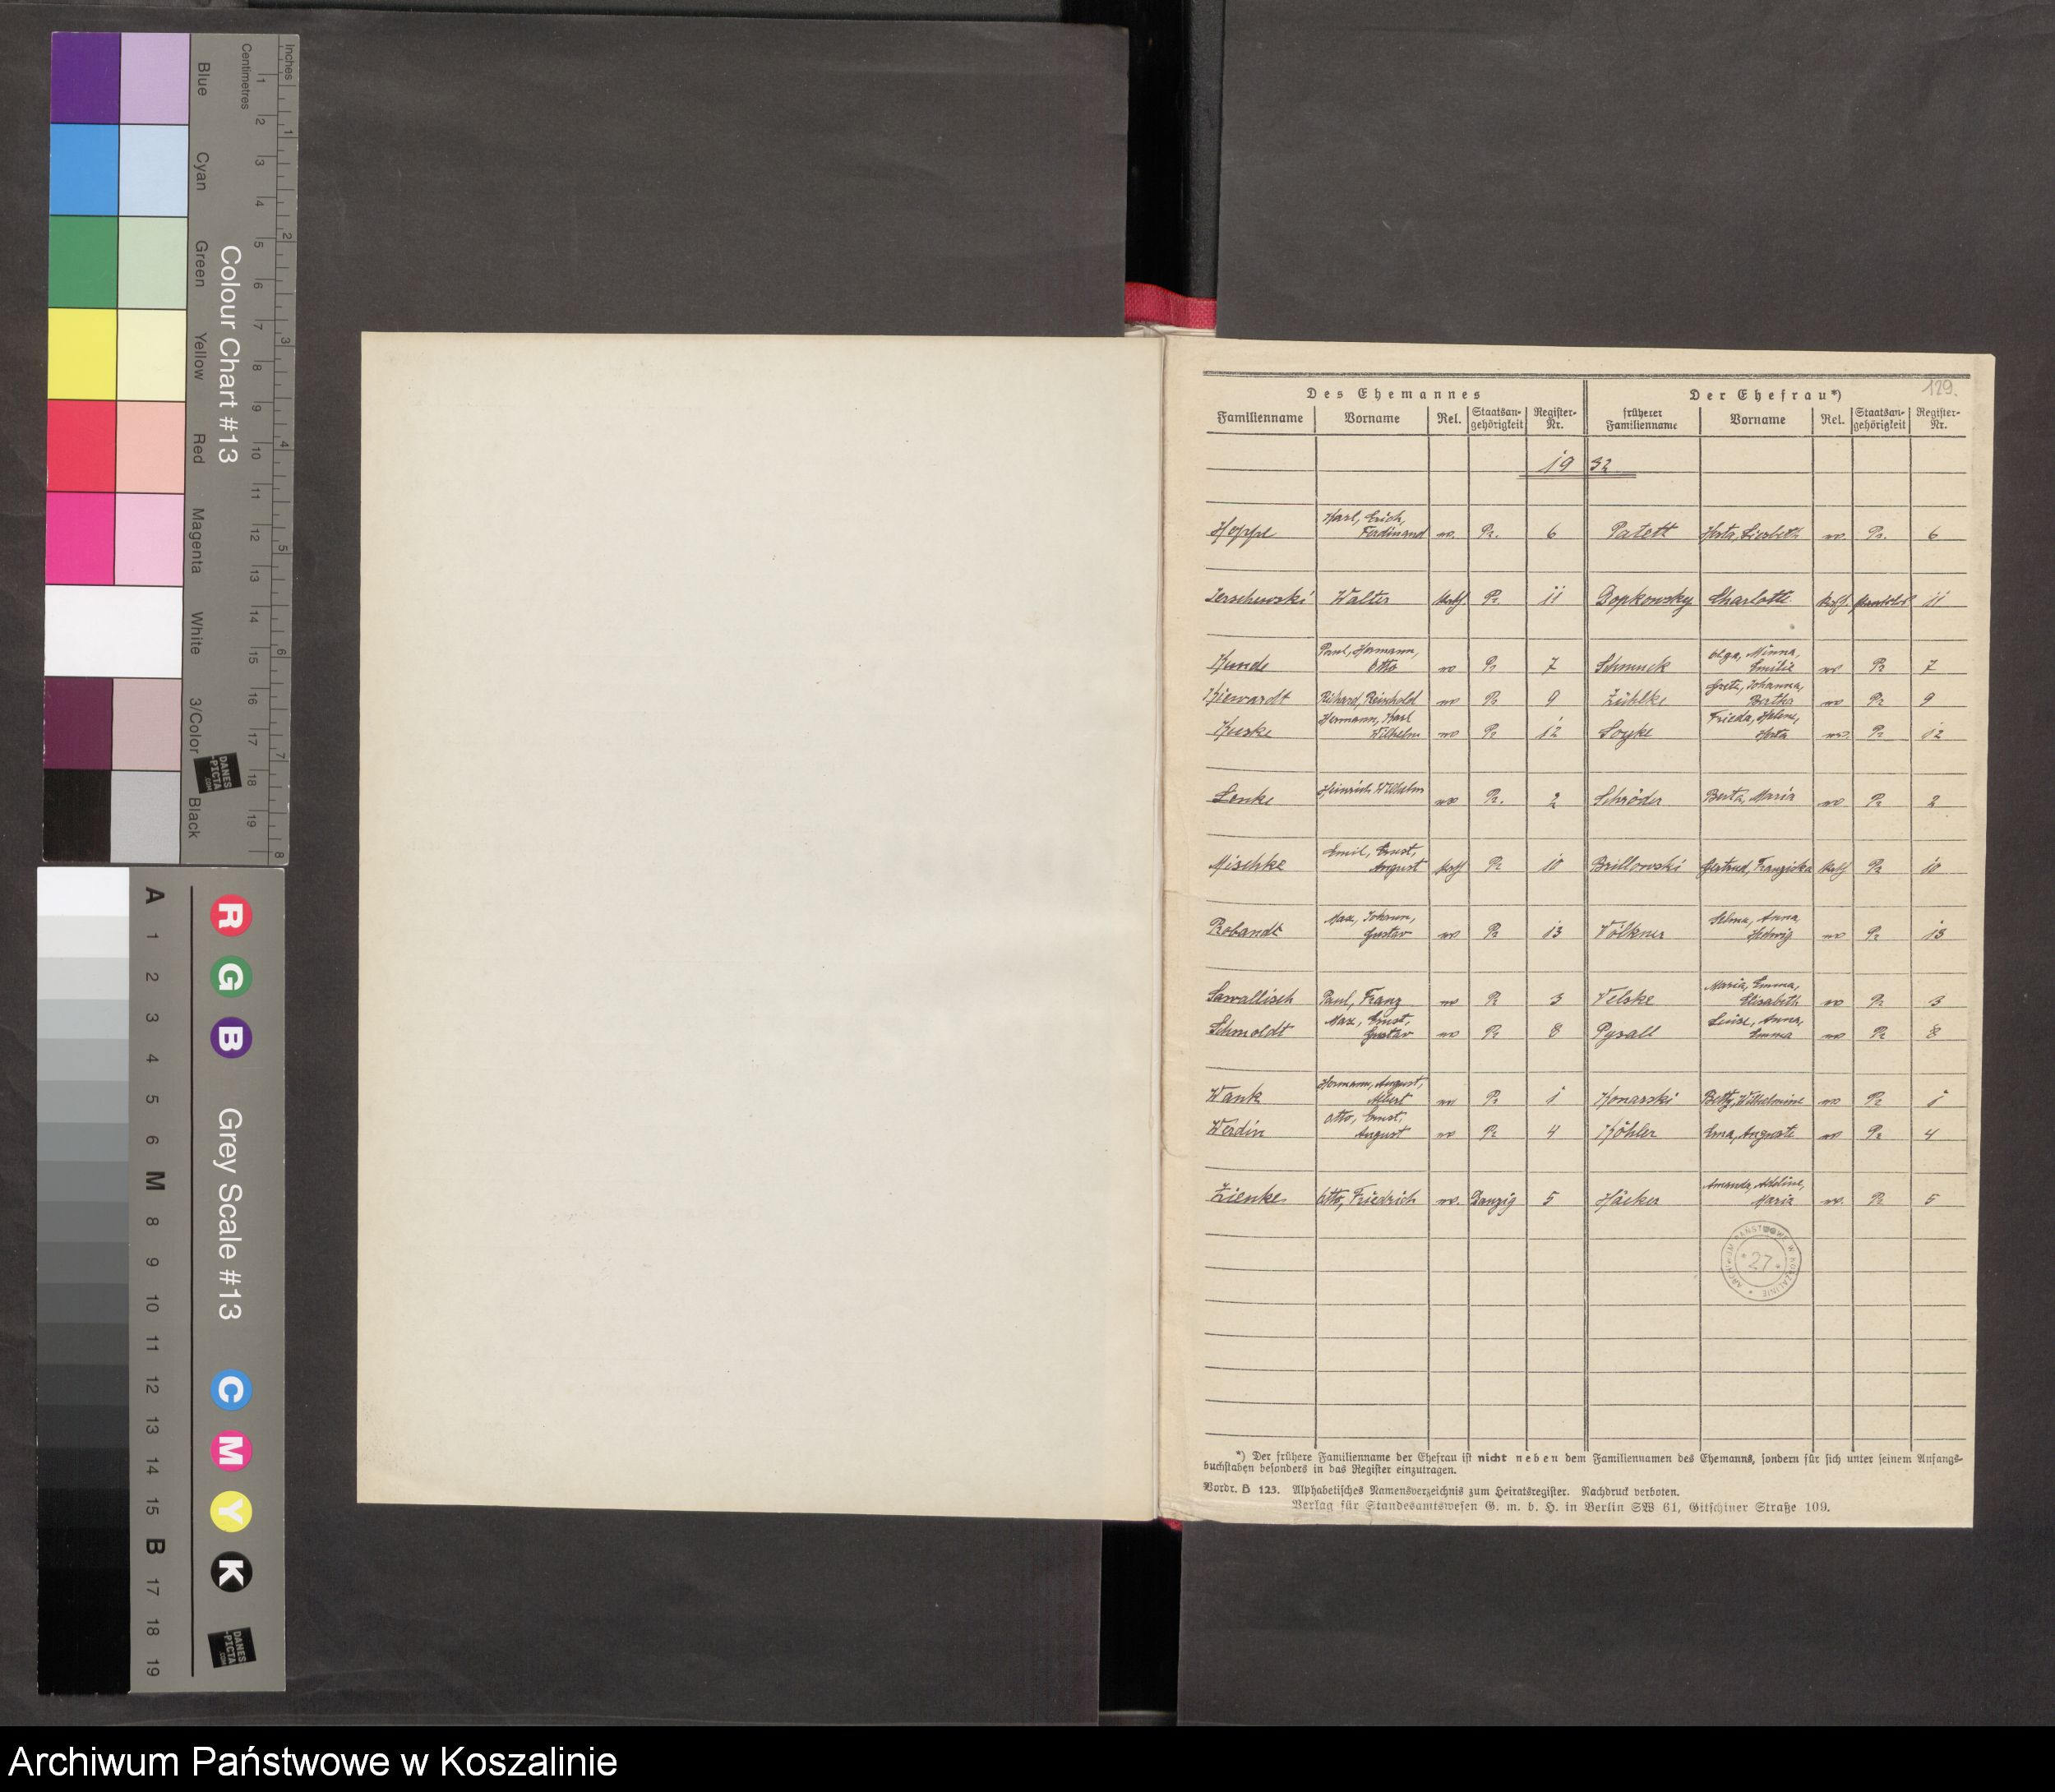 Blue Cyan Green Yellow Red Magenta White 3/Color Black
Colour Chart #13
Centimetres
Inches
1 2 3 4 5 6 7 8 9 10 11 12 13 14 15 16 17 18 19
1 2 3 4 5 6 7 8
DANES
-PICTA
.COM
A 1 2 3 4 5 6 M 8 9 10 11 12 13 14 15 B 17 18 19
R G B
Grey Scale #13
C M Y K
DANES
-PICTA
.COM
129.
Des Ehemannes Der Ehefrau*)
Familienname Vorname Rel. Staatsan-gehörigkeit Register-Nr. früherer Familienname Vorname Rel. Staatsan-gehörigkeit Register-Nr.
19 32
Karl, Erich,
Hoppe Ferdinand ev. Pr. 6 Patett Herta, Liesbeth ev. Pr. 6
Jerschewski Walter Kath. Pr. 11 Dopkowsky Charlotte Kath. 11
Paul, Hermann, Olga, Minna,
Kunde Otto ev Pr 7 Schmuck Emilie ev Pr 7
Grete, Johanna,
Kiewardt Richard, Reinhold ev Pr 9 Zühlke Bertha ev Pr 9
Hermann, Karl Frieda, Helene,
Kuske Wilhelm ev Pr 12 Soyke Herta ev. Pr 12
Lenke Heinrich Wilhelm ev Pr. 2 Schröder Berta, Maria ev Pr 2
Emil, Ernst,
Mischke August Kath Pr 10 Brillowski Gertrud, Franziska Kath Pr 10
Max, Johann, Selma, Anna
Robandt Gustav ev Pr 13 Völkner Hedwig ev Pr 13
Maria, Emma,
Sawallisch Paul, Franz ev Pr 3 Velske Elisabeth ev Pr 3
Max, Ernst, Luise, Anna,
Schmoldt Gustav ev Pr 8 Pysall Emma ev Pr 8
Hermann, August,
Wank Albert ev Pr 1 Konarski Betty, Wilhelmine ev Pr 1
Otto, Ernst,
Werdin August ev Pr 4 Köhler Erna, Auguste ev Pr 4
Amanda, Adeline,
Zienke Otto, Friedrich ev. Danzig 5 Häcker Maria ev. Pr 5
ARCHIWUM PAŃSTWOWE W KOSZALINIE
* 27 *
*) Der frühere Familienname der Ehefrau ist nicht neben dem Familiennamen des Ehemanns, sondern für sich unter seinem Anfangs-
buchstaben besonders in das Register einzutragen.
Vordr. B 123. Alphabetisches Namensverzeichnis zum Heiratsregister. Nachdruck verboten.
Verlag für Standesamtswesen G. m. b. H. in Berlin SW 61, Gitschiner Straße 109.
Archiwum Państwowe w Koszalinie